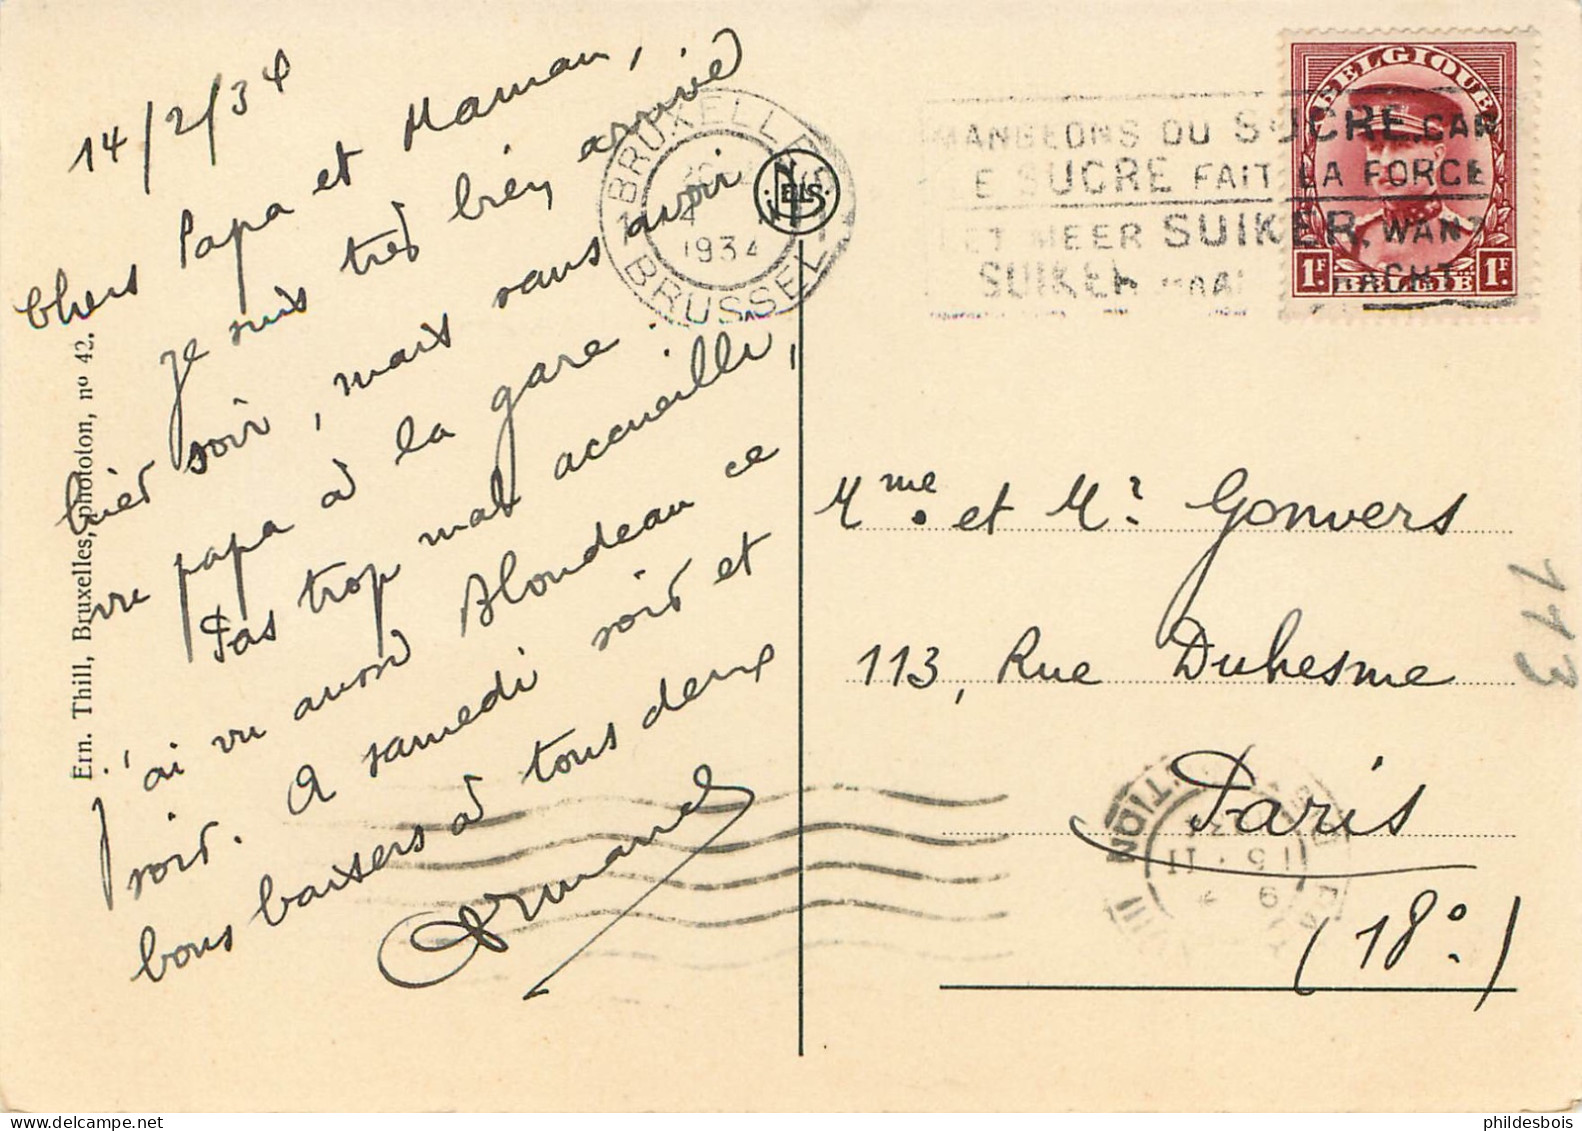 14/2/34
Chers Papa et Maman,
je suis très bien arrivé
hier soir, mais sans avoir
vu papa à la gare.
Pas trop mal accueilli,
j'ai vu aussi Blondeau ce
soir. A samedi soir et
bons baisers à tous deux
Armand
Ern. Thill, Bruxelles, phototon, nº 42.
BRUXELLES
1934
BRUSSEL
NELS
MANGEONS DU SUCRE CAR
LE SUCRE FAIT LA FORCE
EET MEER SUIKER, WANT
SUIKER MAAKT KRACHT
BELGIQUE
1F BELGIË 1F
Mme. et Mr Gonvers
113, Rue Duhesme
Paris
(18º.)
113
phildesbois